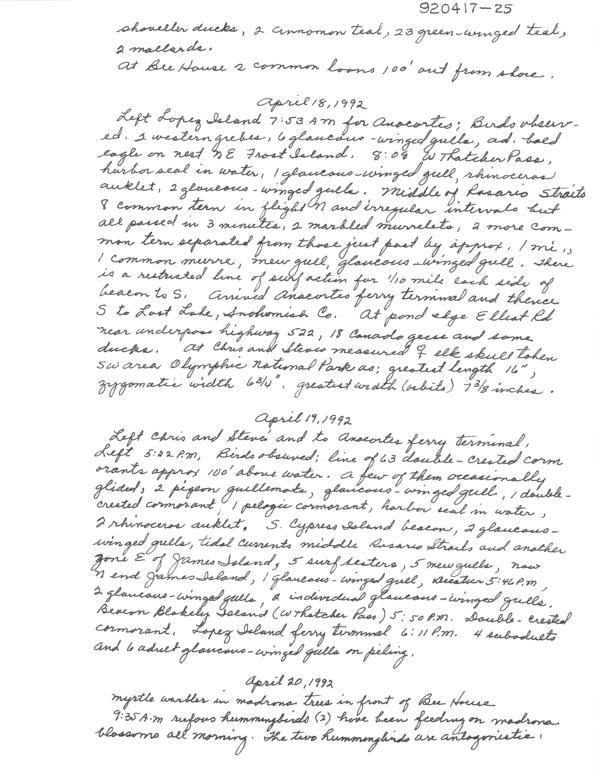 920417-25
shoveller ducks, 2 cinnamon teal, 23 green-winged teal,
2 mallards.
At Bee House 2 common loons 100' out from shore.
April 18, 1992
Left Lopez Island 7:53 AM for Anacortes; Birds observ-
ed. 2 western grebes, 6 glaucous-winged gulls, ad. bald
eagle on nest NE Frost Island. 8:08 W Thatcher Pass,
harbor seal in water, 1 glaucous-winged gull, rhinoceros
auklet, 2 glaucous-winged gulls. Middle of Rosario Straits
8 common tern in flight N and irregular intervals but
all passed in 3 minutes, 2 marbled murrelets, 2 more com-
mon tern separated from those just past by approx. 1 mi.,
1 common murre, mew gull, glaucous-winged gull. There
is a restricted line of surf action for 1/10 mile each side of
beacon to S. Arrived Anacortes ferry terminal and thence
S to Lost Lake, Snohomish Co. At pond edge Elliot Rd
near underpass highway 522, 18 Canada geese and some
ducks. At Chris and Steves measured ♀ elk skull taken
SW area Olympic National Park as; greatest length 16",
zygomatic width 6 3/4". greatest width (orbits) 7 3/8 inches.
April 19, 1992
Left Chris and Steves' and to Anacortes ferry terminal.
Left 5:22 P.M, Birds observed: line of 63 double-crested corm
orants approx 100' above water. A few of them occasionally
glided, 2 pigeon guillemots, glaucous-winged gull, 1 double-
crested cormorant, 1 pelagic cormorant, harbor seal in water,
2 rhinoceros auklet. S. Cypress Island beacon, 2 glaucous-
winged gulls, tidal currents middle Rosario Straits and another
zone E of James Island, 5 surf scoters, 5 mew gulls, now
N end James Island, 1 glaucous-winged gull, Decatur 5:46 P.M,
2 glaucous-winged gulls, 2 individual glaucous-winged gulls.
Beacon Blakely Island (W Thatcher Pass) 5:50 P.M. Double-crested
cormorant. Lopez Island ferry terminal 6:11 P.M. 4 subadults
and 6 adult glaucous-winged gulls on piling.
April 20, 1992
myrtle warbler in madrona trees in front of Bee House
9:35 A.M rufous hummingbirds (2) have been feeding on madrona
blossoms all morning. The two hummingbirds are antagonistic.